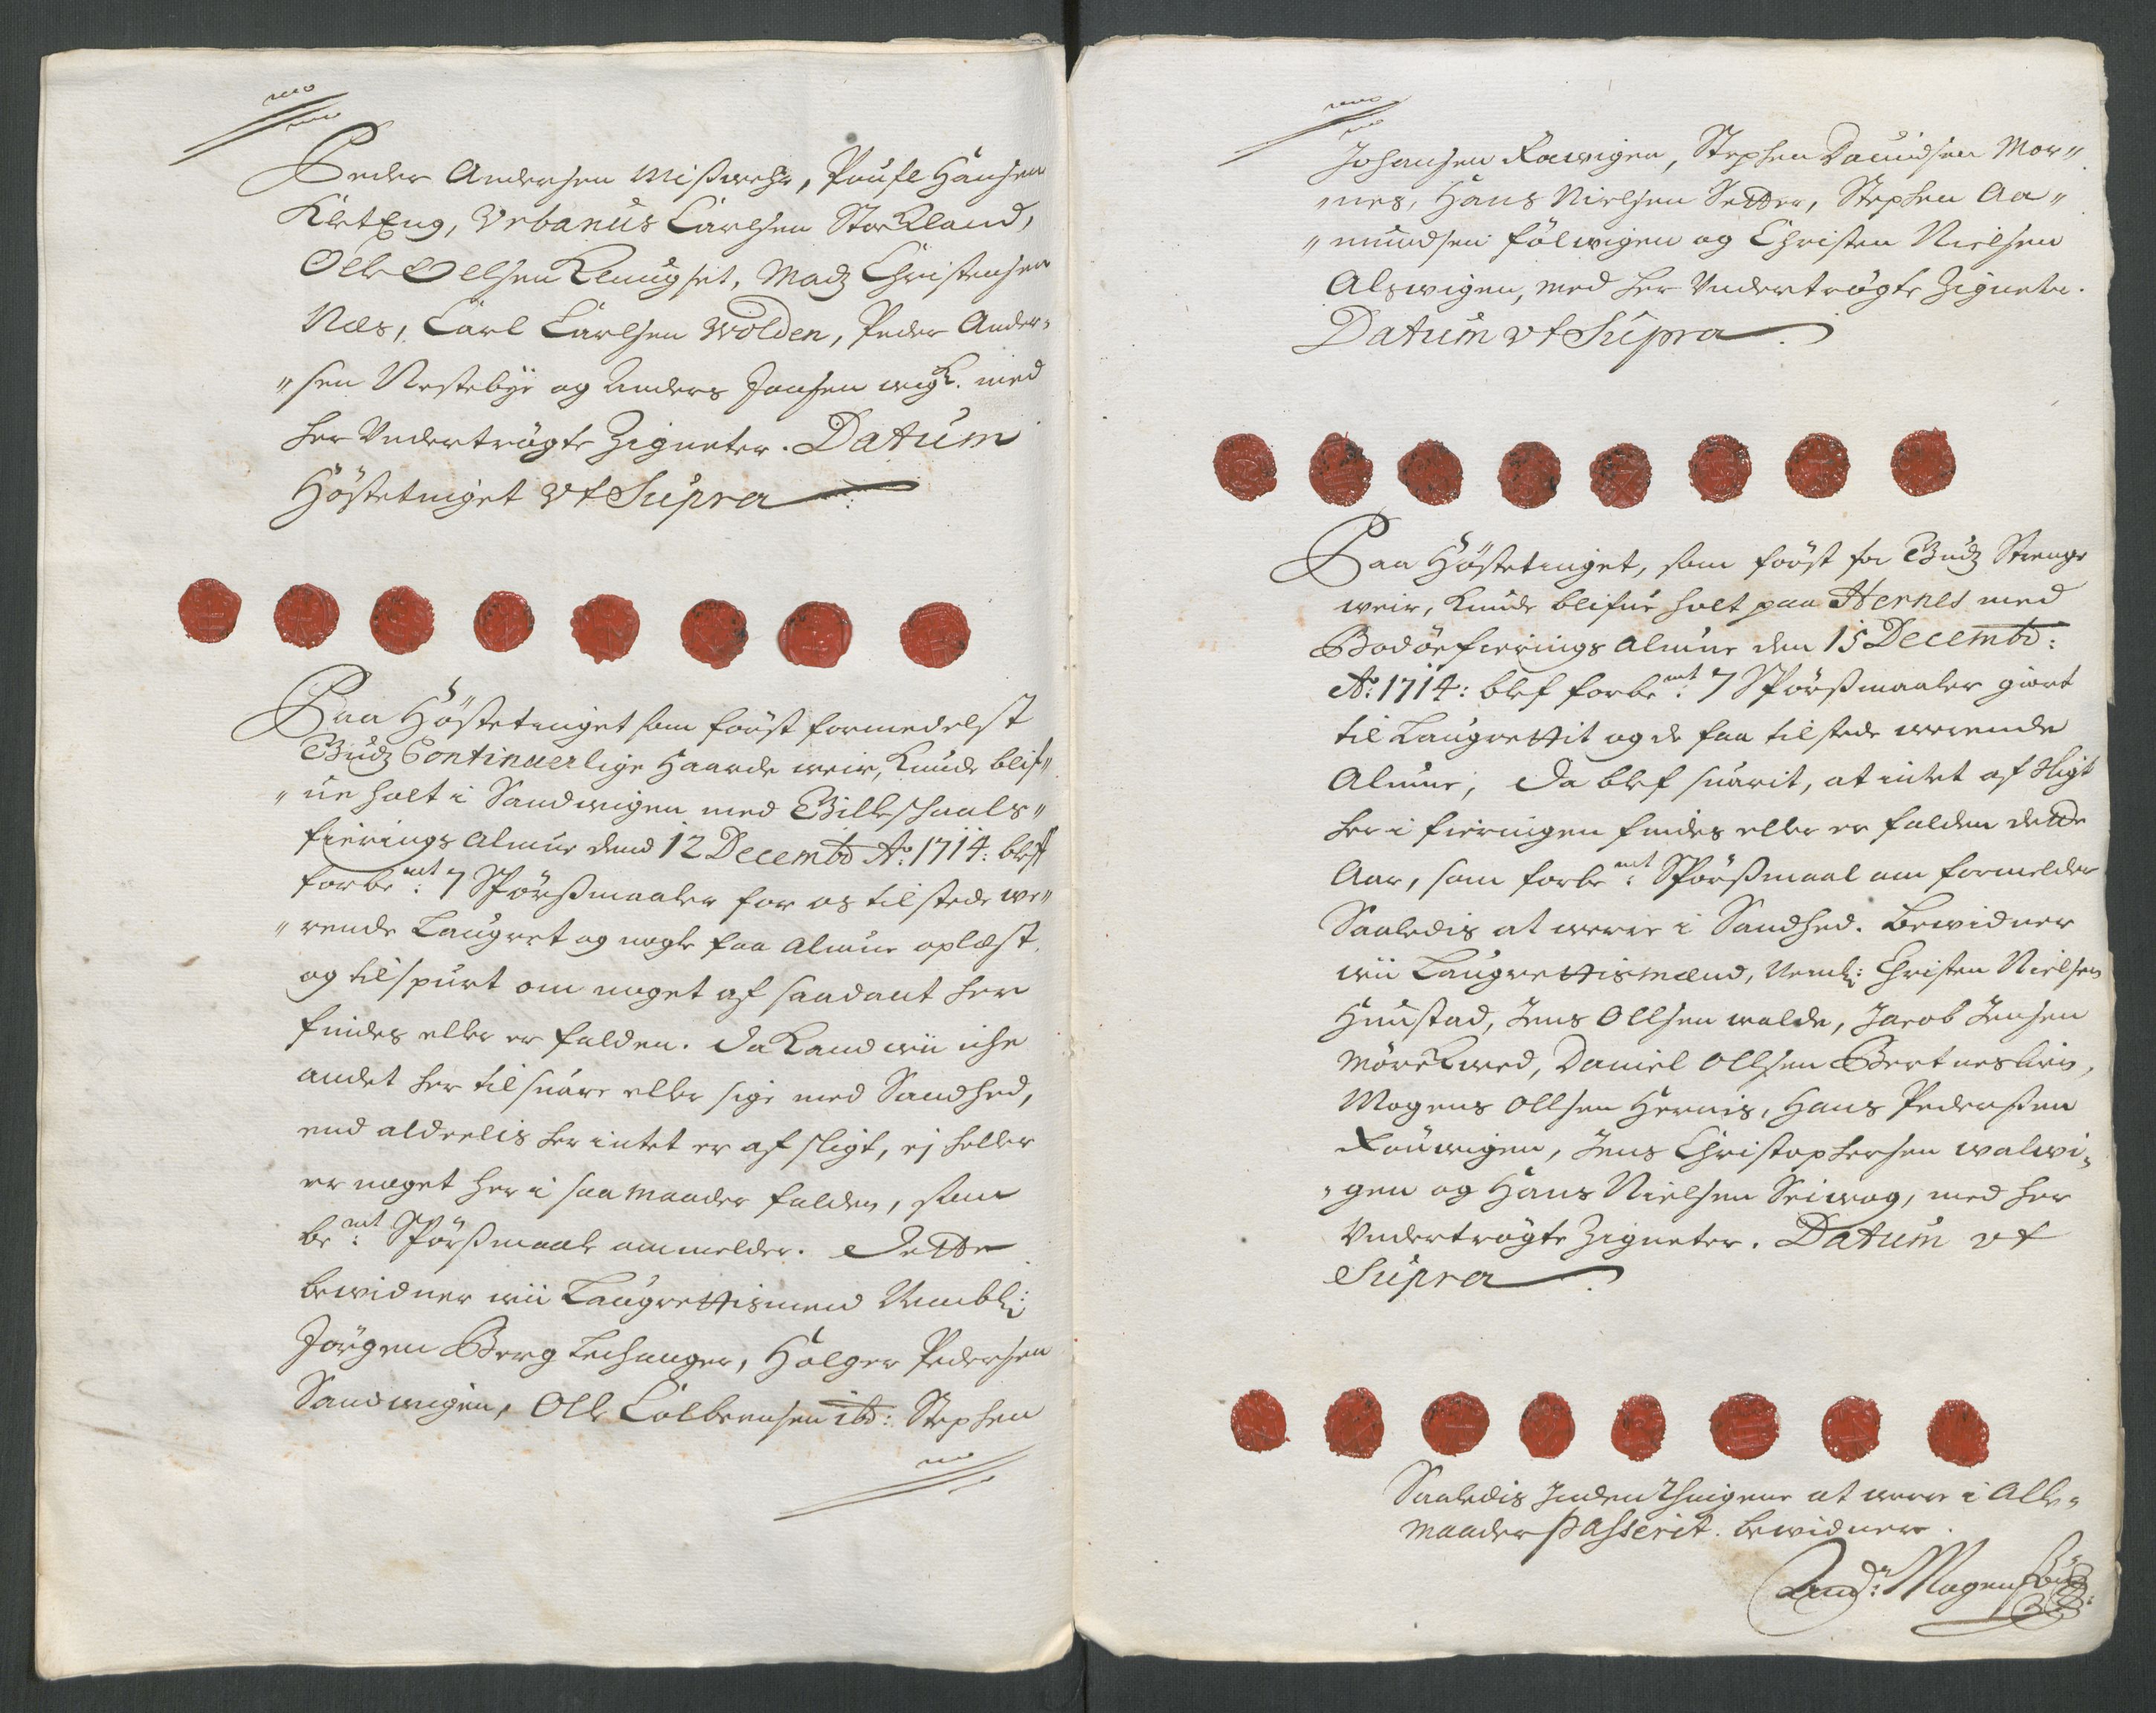 Peder Andersen Misswehr, Poufl Hansen
KletEng, Vrbanus Carlsen Storland,
Olle Ollsen Klungset, Madz Christensen
Næs, Carl Carlsen Wolden, Peder Ander-
"sen Nestebÿe og Anders Jonsen wigL. med
her Undertrögte Zigneter. Datum
Höstetinget vt Supra
Paa Höstetinget som först formedelst
Gudz Continuerlige Haarde weir, Kunde blif"
"ue holt i Sandwigen med Gilleschaals"
fierings Almue dend 12 Decembr Ao: 1714: bleff
forbemt: 7 Spörssmaaler for os tilstede we"
"rende Laugret og nogle faa Almue oplæst
og tilspurt om noget af saadant her
findes eller er falden. da Kand wii iche
andet her til suare eller sige med Sandhed,
end aldeelis her intet er af sligt, ej heller
er noget her i saa Maader falden, som
bemt: Spörssmaale ommelder. Dette
bewidner wii Laugrettismend Nembl:
Jörgen Berg Lechanger, Holger Pedersen
Sandwigen, Olle Colbensen ibd: Stephen
Johansen Rawigen, Stephen Dauidsen Mor"
"nes, Hans Nielsen Setter, Stephen Aa"
"mundsen fölwigen og Christen Nielsen
Alswigen, med her Undertrögte Zigneter.
Datum vt Supra
Paa Höstetinget, som först for Gudz Strenge
weir, Kunde blifue holt paa Hernes med
Bodöefierings Almue den 15 Decembr:
Ao: 1714: blef forbemt: 7 Spörssmaaler giort
til Laugrettit og de faa tilstede werende
Almue; da blef suarit, at intet af sligt
her i fieringen findes eller er falden dette
Aar, som forbemt: Spörssmaal om formelder
Saaledis at werre i Sandhed. bewidner
wii Laugrettismænd, Neml: Christen Nielsen
Hunstad, Jens Ollsen walde, Jacob Jensen
Mörckwed, Daniel Ollsen Bertneslien,
Mogens Ollsen Hernis, Hans Pederssen
Rauwigen, Jens Christophersen walwi"
"gen og Hans Nielsen Seiwog, med her
Undertrögte Zigneter. Datum vt
Supra
Saaledis Inden Thingene at were i Alle-
maader passerit. bewidner
And: Mogensen